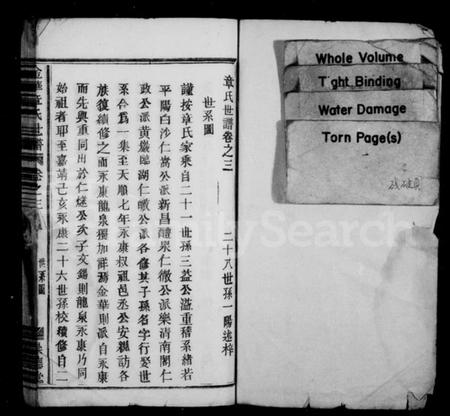 章氏世譜卷之三 二十八世孫一陽述梓
世系圖
謹按章氏家乘自二十一世孫三益公溢重稽系緒若
平陽白沙仁嵩公派新昌醴泉仁徽公派樂清南閣仁
政公派黃巖臨湖仁㬇公派各修其子孫名字行娶世
系合爲一集至天順七年永康叔祖邑丞公安親訪各
族復續修之而永康龍泉獨加詳焉金華則派自永康
而先與重同出於仁燧公次子文錫則龍泉永康乃同
始祖者耶至嘉靖己亥永康二十六世孫校續修自二
世系圖
Whole Volume
Tight Binding
Water Damage
Torn Page(s)
FamilySearch